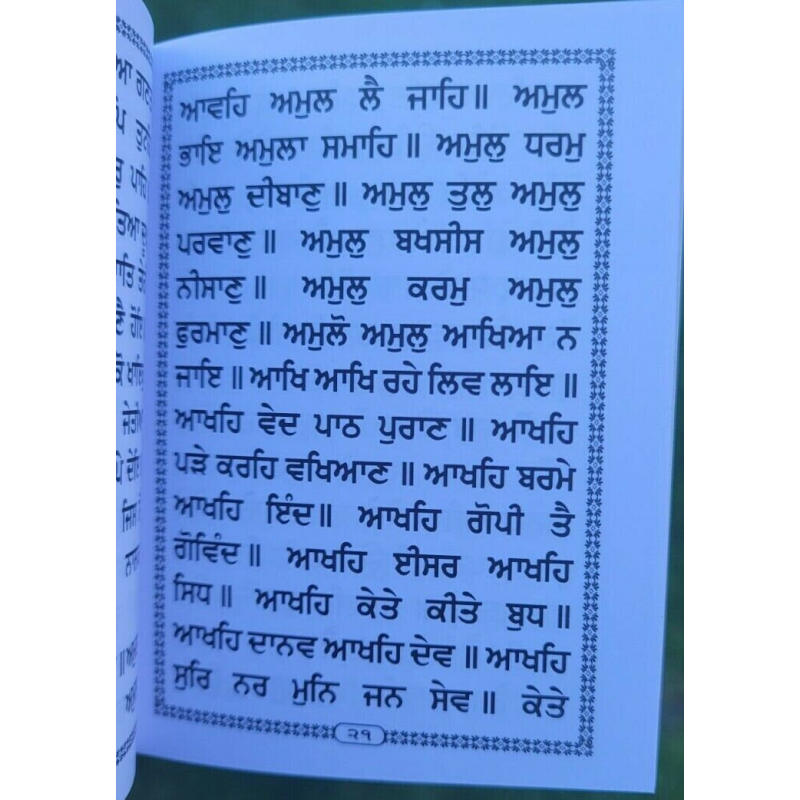 ਆਵਹਿ ਅਮੁਲ ਲੈ ਜਾਹਿ॥ ਅਮੁਲ
ਭਾਇ ਅਮੁਲਾ ਸਮਾਹਿ॥ ਅਮੁਲੁ ਧਰਮੁ
ਅਮੁਲੁ ਦੀਬਾਣੁ॥ ਅਮੁਲੁ ਤੁਲੁ ਅਮੁਲੁ
ਪਰਵਾਣੁ॥ ਅਮੁਲੁ ਬਖਸੀਸ ਅਮੁਲੁ
ਨੀਸਾਣੁ॥ ਅਮੁਲੁ ਕਰਮੁ ਅਮੁਲੁ
ਫੁਰਮਾਣੁ॥ ਅਮੁਲੋ ਅਮੁਲੁ ਆਖਿਆ ਨ
ਜਾਇ॥ ਆਖਿ ਆਖਿ ਰਹੇ ਲਿਵ ਲਾਇ॥
ਆਖਹਿ ਵੇਦ ਪਾਠ ਪੁਰਾਣ॥ ਆਖਹਿ
ਪੜੇ ਕਰਹਿ ਵਖਿਆਣ॥ ਆਖਹਿ ਬਰਮੇ
ਆਖਹਿ ਇੰਦ॥ ਆਖਹਿ ਗੋਪੀ ਤੈ
ਗੋਵਿੰਦ॥ ਆਖਹਿ ਈਸਰ ਆਖਹਿ
ਸਿਧ॥ ਆਖਹਿ ਕੇਤੇ ਕੀਤੇ ਬੁਧ॥
ਆਖਹਿ ਦਾਨਵ ਆਖਹਿ ਦੇਵ॥ ਆਖਹਿ
ਸੁਰਿ ਨਰ ਮੁਨਿ ਜਨ ਸੇਵ॥ ਕੇਤੇ
੨੧